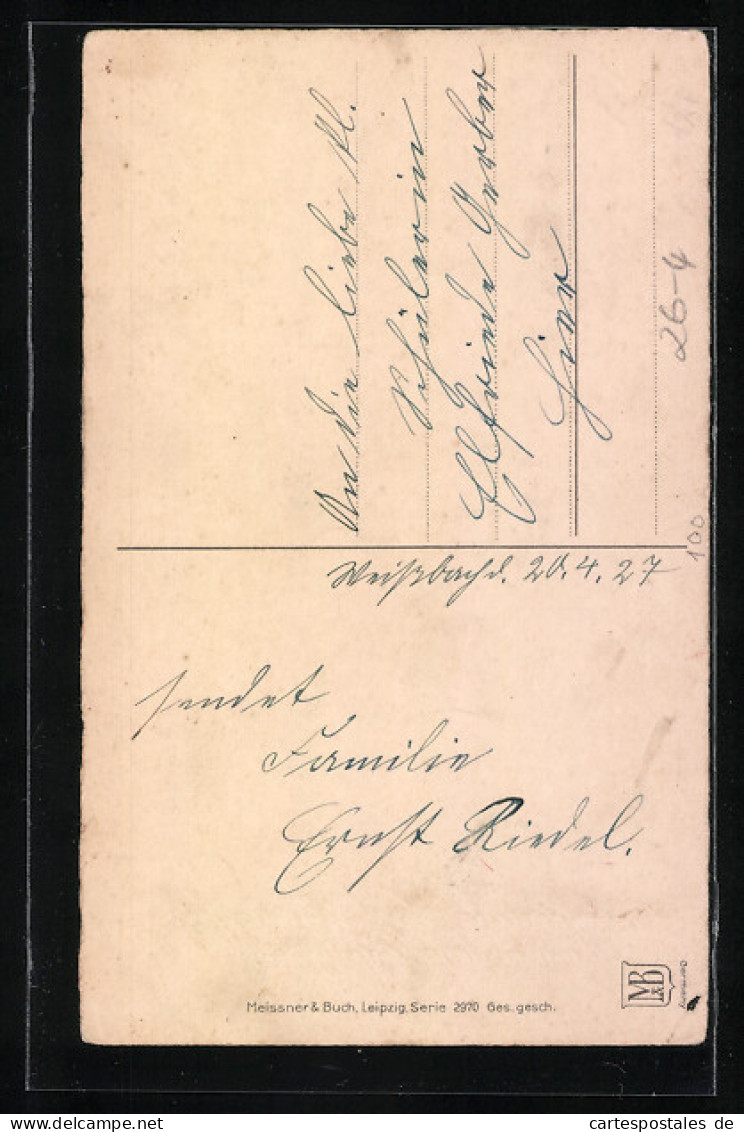 An die liebe kl.
Schülerin
Elfriede Gerber
Hier
26-4
100
Weißbach d. 20.4.27
sendet
Familie
Ernst Riedel.
MB
&
Meissner & Buch, Leipzig, Serie 2970 Ges. gesch.
cartespostales de